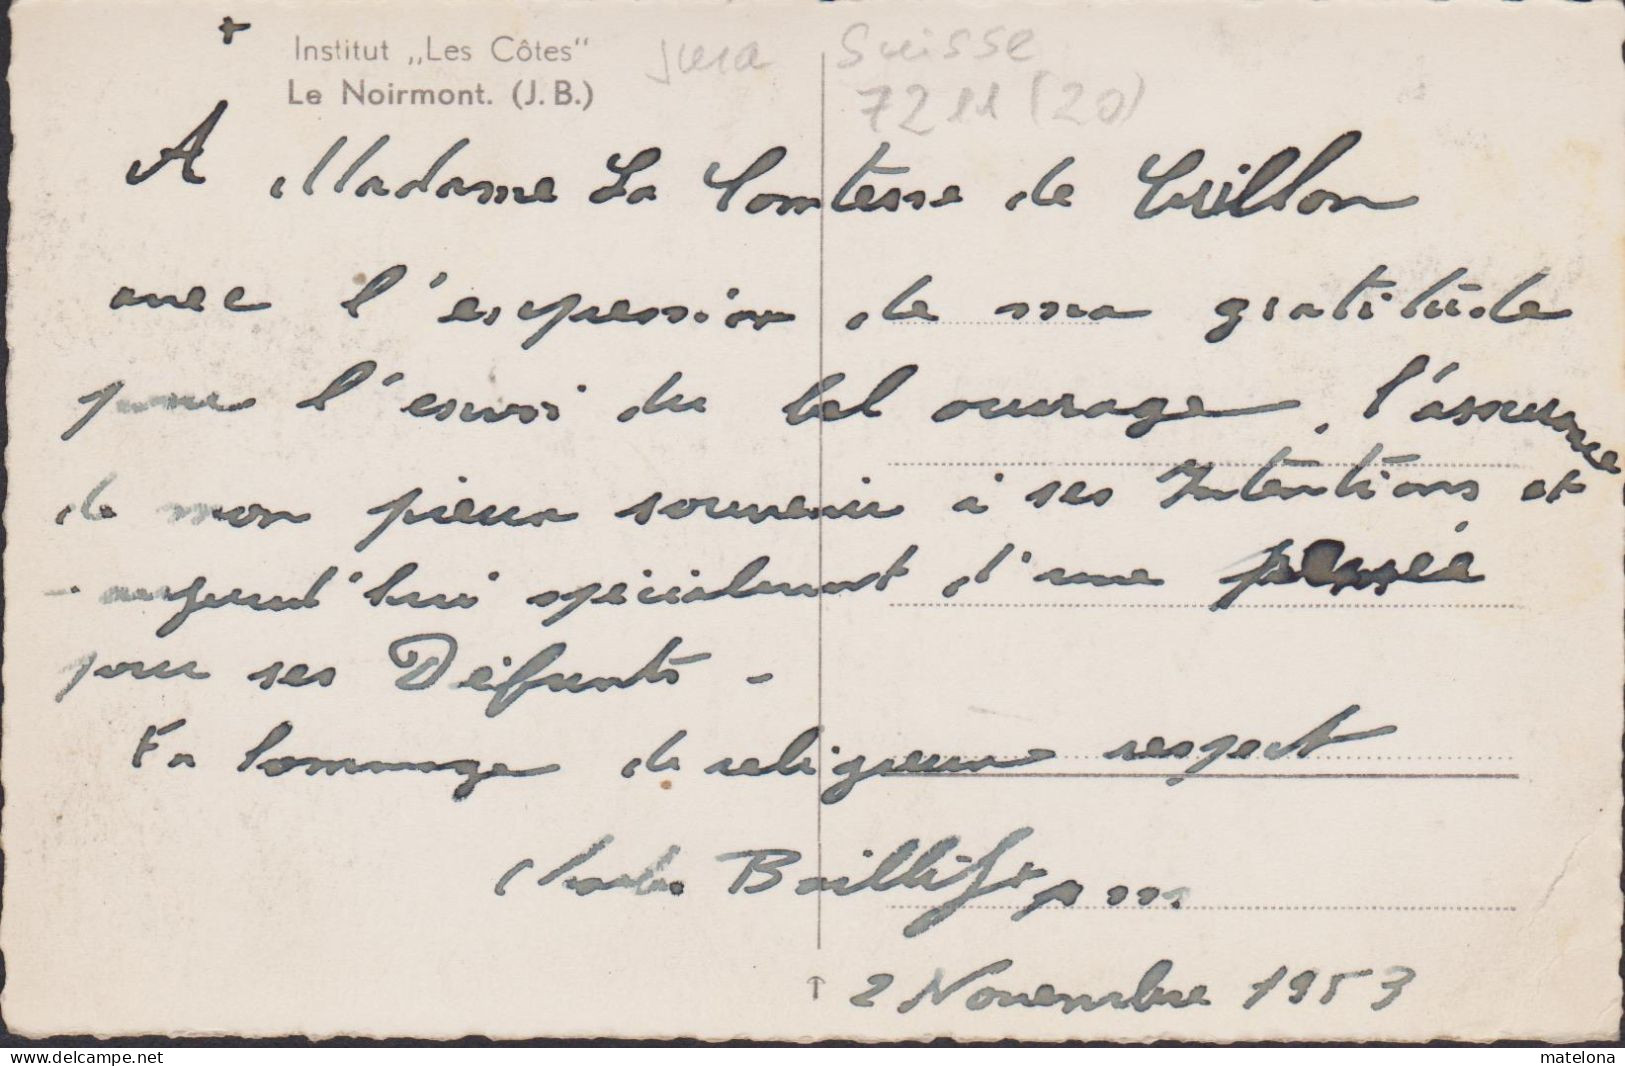 +
Institut „Les Côtes"
Le Noirmont. (J.B.)
Jura Suisse
7211 (20)
A Madame La Comtesse de Crillon
avec l'expression de ma gratitude
pour l'envoi du bel ouvrage, l'assurance
de mon pieux souvenir à ses Intentions et
aujourd'hui spécialement d'une pensée
pour ses Défunts -
En hommage de religieux respect
Charles Baillif + p m
2 Novembre 1953
delcampe.net
matelona